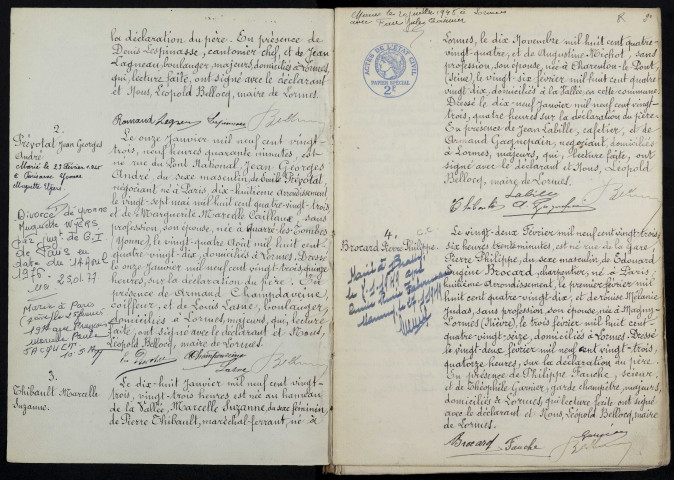 la déclaration du père. En présence de
Denis Lespinasse, cantonier chef, et de Jean
Lagneau, boulanger, majeurs, domiciliés à Lormes,
qui, lecture faite, ont signé avec le déclarant
et Nous, Léopold Bellocq, maire de Lormes.
2.
Prévotat Jean Georges
André.
Marié le 23 Février 1925
Le onze Janvier mil neuf cent vingt-
trois, neuf heures quarante minutes, est
né rue du Pont National, Jean Georges
André, du sexe masculin, de Emile Prévotat,
négociant né à Paris dix-huitième arrondissement
le vingt-sept mai mil huit cent quatre-vingt-trois
et de Marguerite Marcelle Cailloux, sans
profession, son épouse, née à Quarré-les-Tombes
(Yonne), le vingt-quatre Août mil huit cent
quatre-vingt-dix, domiciliés à Lormes. Dressé
le onze Janvier mil neuf cent vingt-trois, quinze
heures, sur la déclaration du père. En
présence de Armand Champdaveine,
coiffeur, et de Louis Lasne, boulanger,
domiciliés à Lormes, majeurs, qui, lecture
faite, ont signé avec le déclarant et Nous,
Léopold Bellocq, maire de Lormes.
Divorcé de Yvonne
Huguette
par jug. T.G.I
de Paris en
date du 14 Avril
1976
Marié à Paris
3.
Thibault Marcelle
Suzanne.
Le dix-huit Janvier mil neuf cent vingt-
trois, vingt-trois heures est née au hameau
de la Vallée, Marcelle Suzanne, du sexe féminin,
de Pierre Thibault, maréchal-ferrant, né à
ACTES DE L'ÉTAT CIVIL
PAPIER SPÉCIAL
2F
Lormes, le dix Novembre mil huit cent quatre-
vingt-quatre, et de Augustine Michot, sans
profession, son épouse, née à Charenton-le-Pont
(Seine), le vingt-six février mil huit cent quatre
vingt-dix, domiciliés à la Vallée, en cette commune.
Dressé le dix-neuf Janvier mil neuf cent vingt-
trois, quatre heures sur la déclaration du père.
En présence de Jean Labille, cafetier, et de
Armand Gagnepain, négociant, domiciliés
à Lormes, majeurs, qui, lecture faite, ont
signé avec le déclarant et Nous, Léopold
Bellocq, maire de Lormes.
4.
Brocard Pierre Philippe.
Le vingt-deux Février mil neuf cent vingt-trois
six heures trente minutes, est né rue de la Gare,
Pierre Philippe, du sexe masculin, de Edouard
Eugène Brocard, charpentier, né à Paris
huitième arrondissement, le premier février mil
huit cent quatre-vingt-dix, et de Louise Mélanie
Judas, sans profession, son épouse, née à Magny-
Lormes (Nièvre), le trois février mil huit cent
quatre-vingt-seize, domiciliés à Lormes. Dressé
le vingt-deux février mil neuf cent vingt-trois,
quatorze heures, sur la déclaration du père.
En présence de Philippe Fauche, scieur,
et de Théophile Garnier, garde champêtre, majeurs,
domiciliés à Lormes, qui, lecture faite ont signé
avec le déclarant et Nous, Léopold Bellocq, maire
de Lormes.
Brocard Fauche